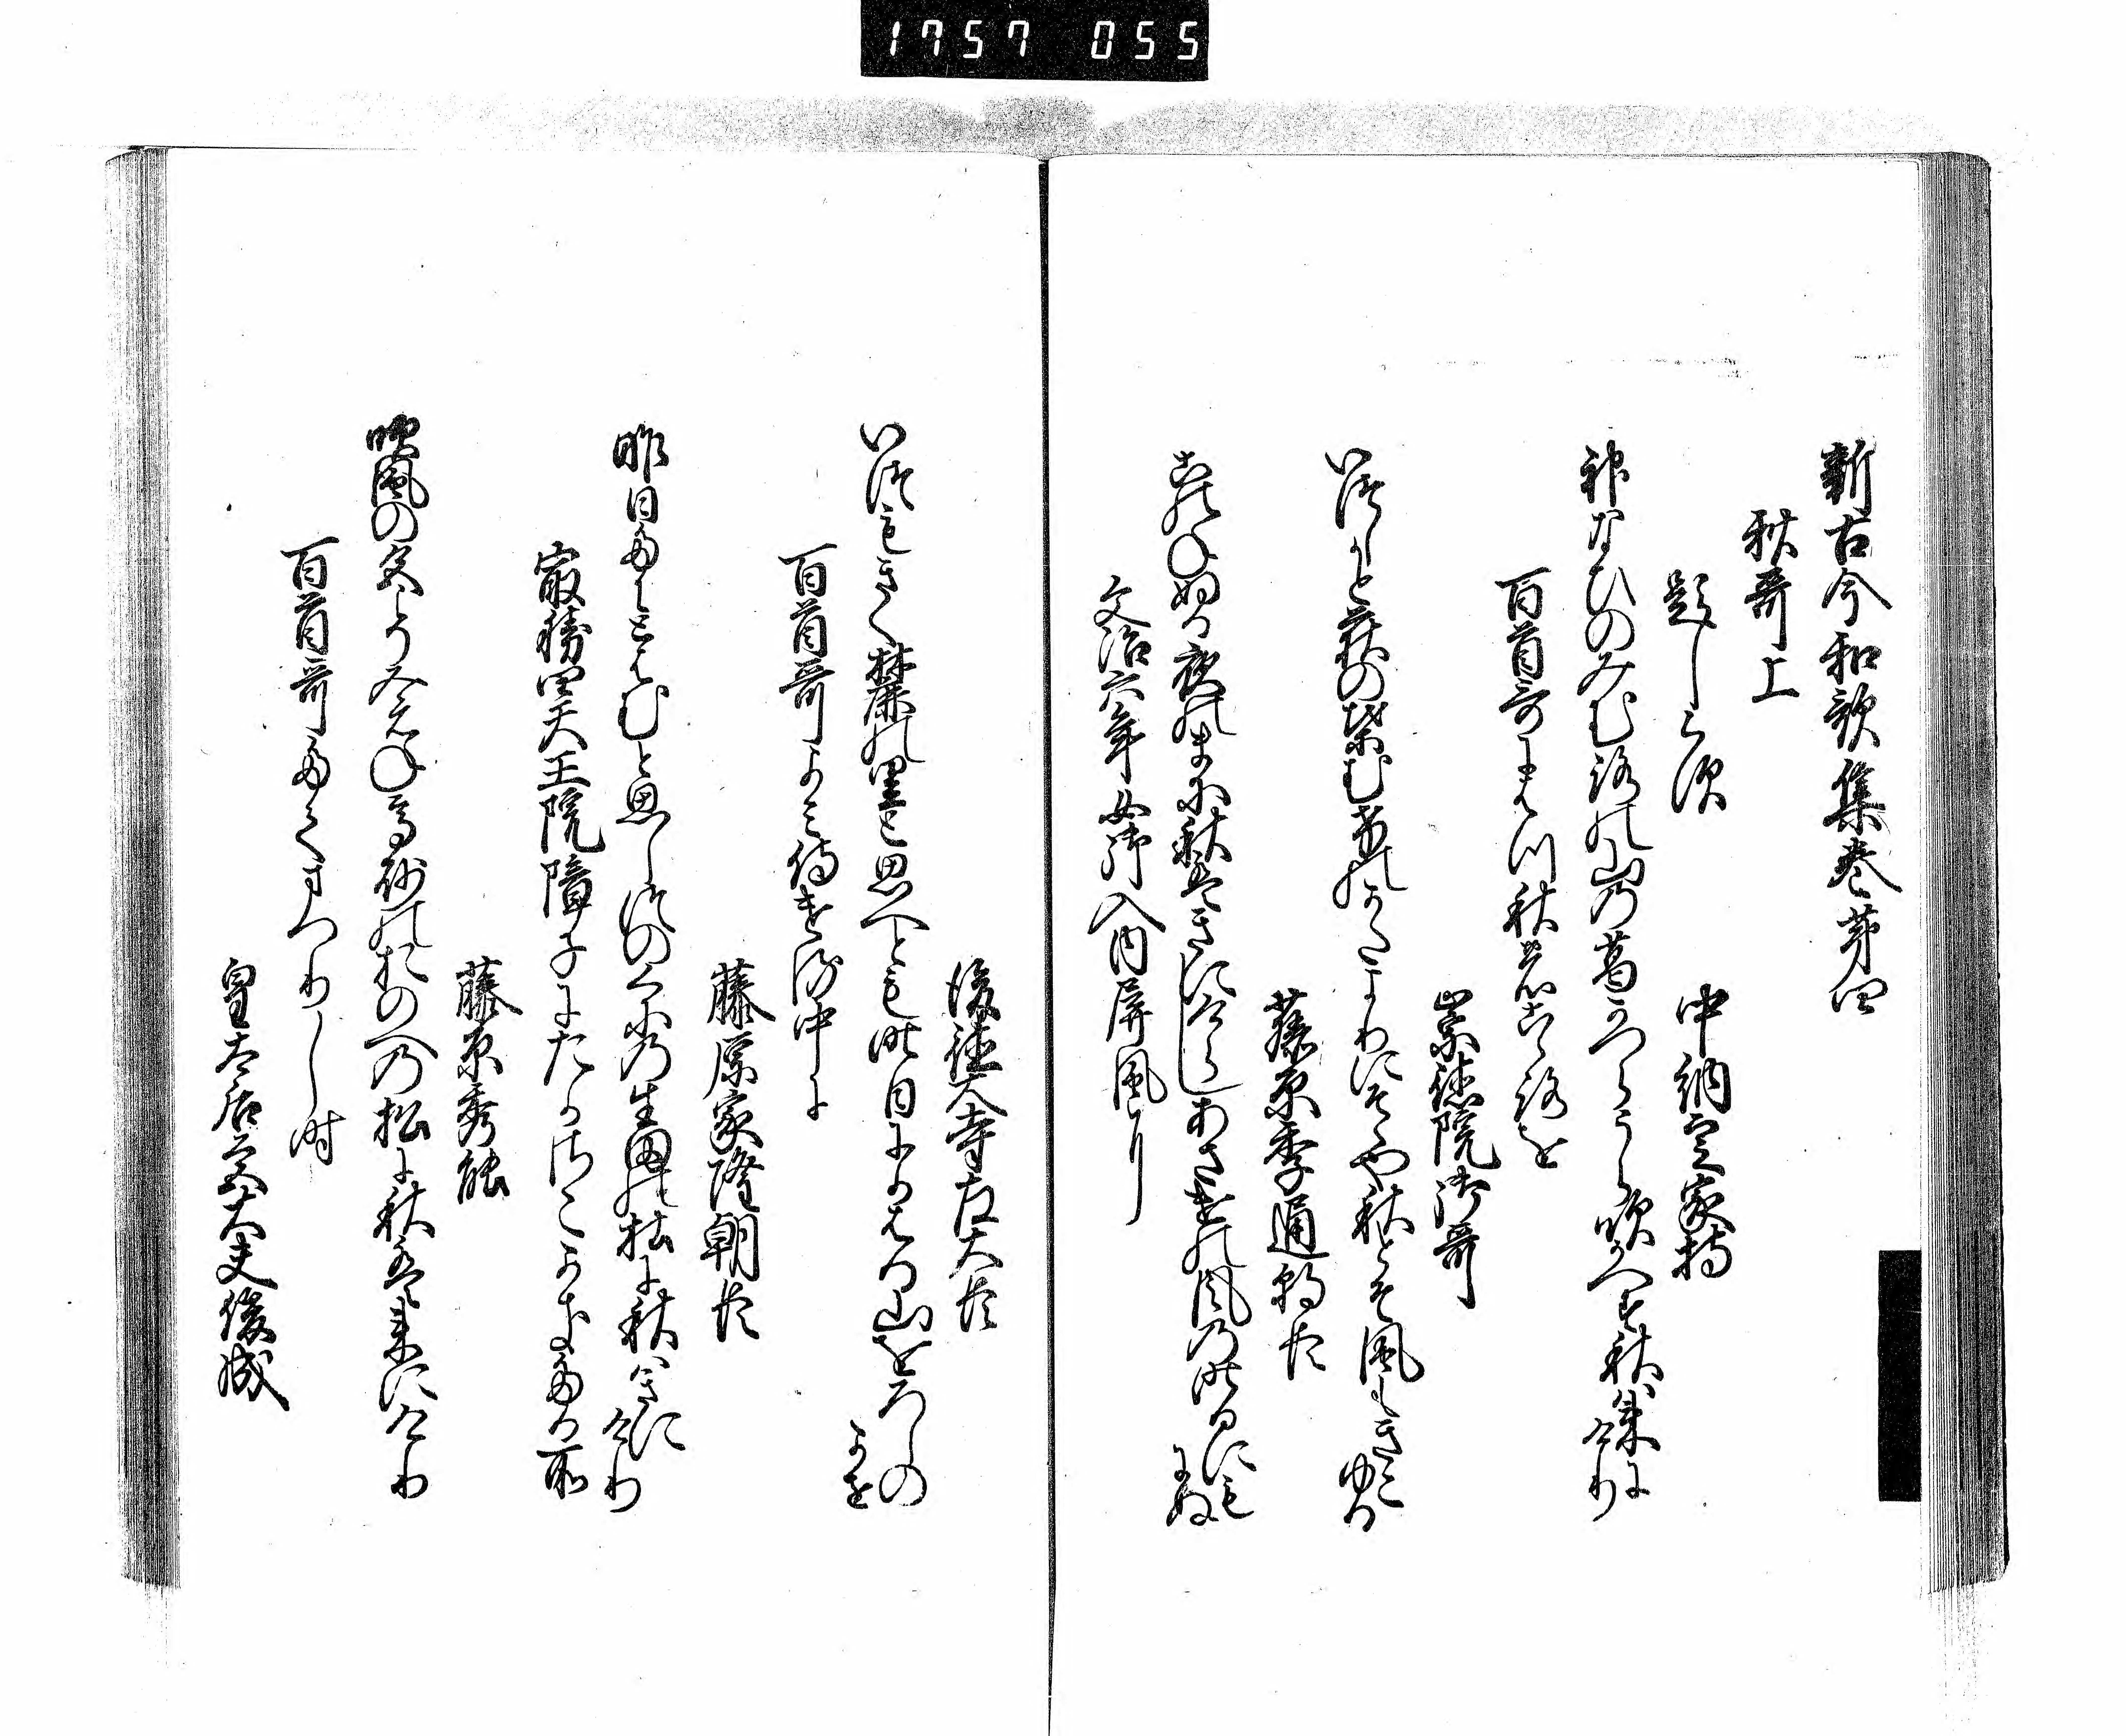 1757 055
新古今和歌集巻第四
秋哥上
題しらす
中納言家持
神なひのみむろの山の葛かつらうら吹かへす秋は来にけり
百首哥にはつ秋の心を
崇徳院御哥
いつしかと荻の葉むけのかたよりにそゝや秋とそ風もきこゆる
藤原季通朝臣
このねぬる夜のまに秋はきにけらしあさけの風の昨日にもにぬ
文治六年女御入内屏風に
後徳大寺左大臣
いつもきく麓の里と思へとも昨日にかはる山をろしのかせ
百首哥よみ侍ける中に
藤原家隆朝臣
昨日たにとはむと思し津のくにの生田の杜に秋はきにけり
最勝四天王院障子にたかさこかきたる所
藤原秀能
吹風の色こそみえね高砂のおのへの松に秋は来にけり
百首哥たてまつりし時
皇太后宮大夫俊成